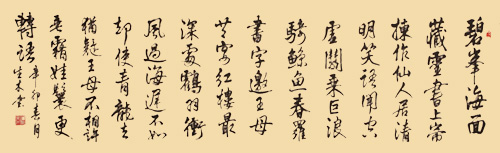 碧峯海面
藏靈書上帝
揀作仙人居清
明笑語聞空
虛鬥乘巨浪
騎鯨魚春羅
書字邀王母
共宴紅樓最
深處鶴羽衝
風過海遲不如
却使青龍去
猶疑王母不相許
垂霧娃鬟更
轉語 辛卯春月